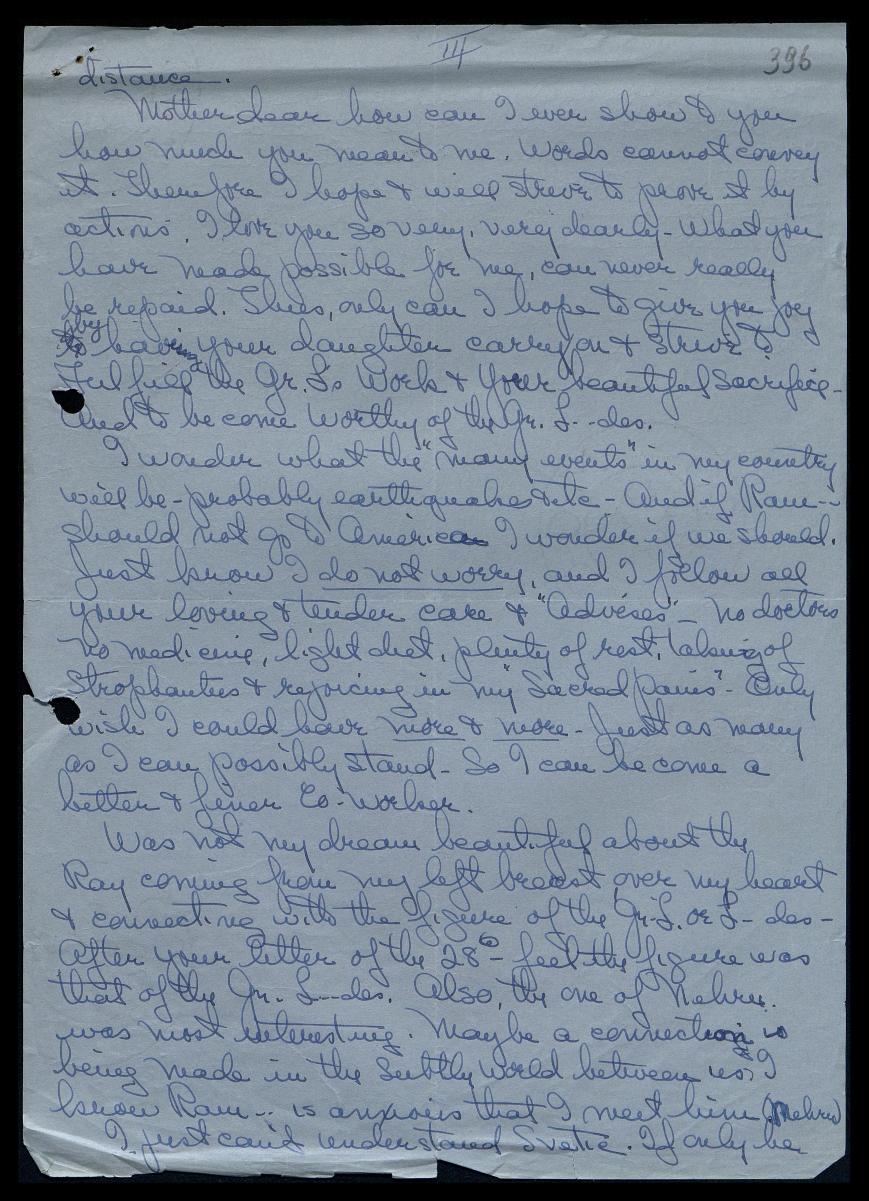 III
396
distance.
Mother dear how can I ever show to you
how much you mean to me. Words cannot convey
it. Therefore I hope & will strive to prove it by
actions. I love you so very, very dearly - What you
have made possible for me, can never really
be repaid. Thus, only can I hope to give you joy
by having your daughter carry on & strive to
fulfill the Gr. L's Work & Your beautiful Sacrifice -
And to become worthy of the Gr. L--des.
I wonder what the "many events" in my country
will be - probably earthquakes etc - And if Ram--
should not go to America I wonder if we should.
Just know I do not worry, and I follow all
your loving & tender care & "Advises" - no doctors
no medicine, light diet, plenty of rest, taking of
Strophantus & rejoicing in my "Sacred pains" - Only
wish I could have more & more - Just as many
as I can possibly stand - So I can become a
better & finer Co-Worker.
Was not my dream beautiful about the
Ray coming from my left breast over my heart
& connecting with the figure of the Gr. L. or L--des -
After your letter of the 28th - feel the figure was
that of the Gr. L--des. Also, the one of Nehru.
was most interesting. Maybe a connection is
being made in the Subtly World between us? I
know Ram-- is anxious that I meet him (Nehru)
I just can't understand Svetic. If only he